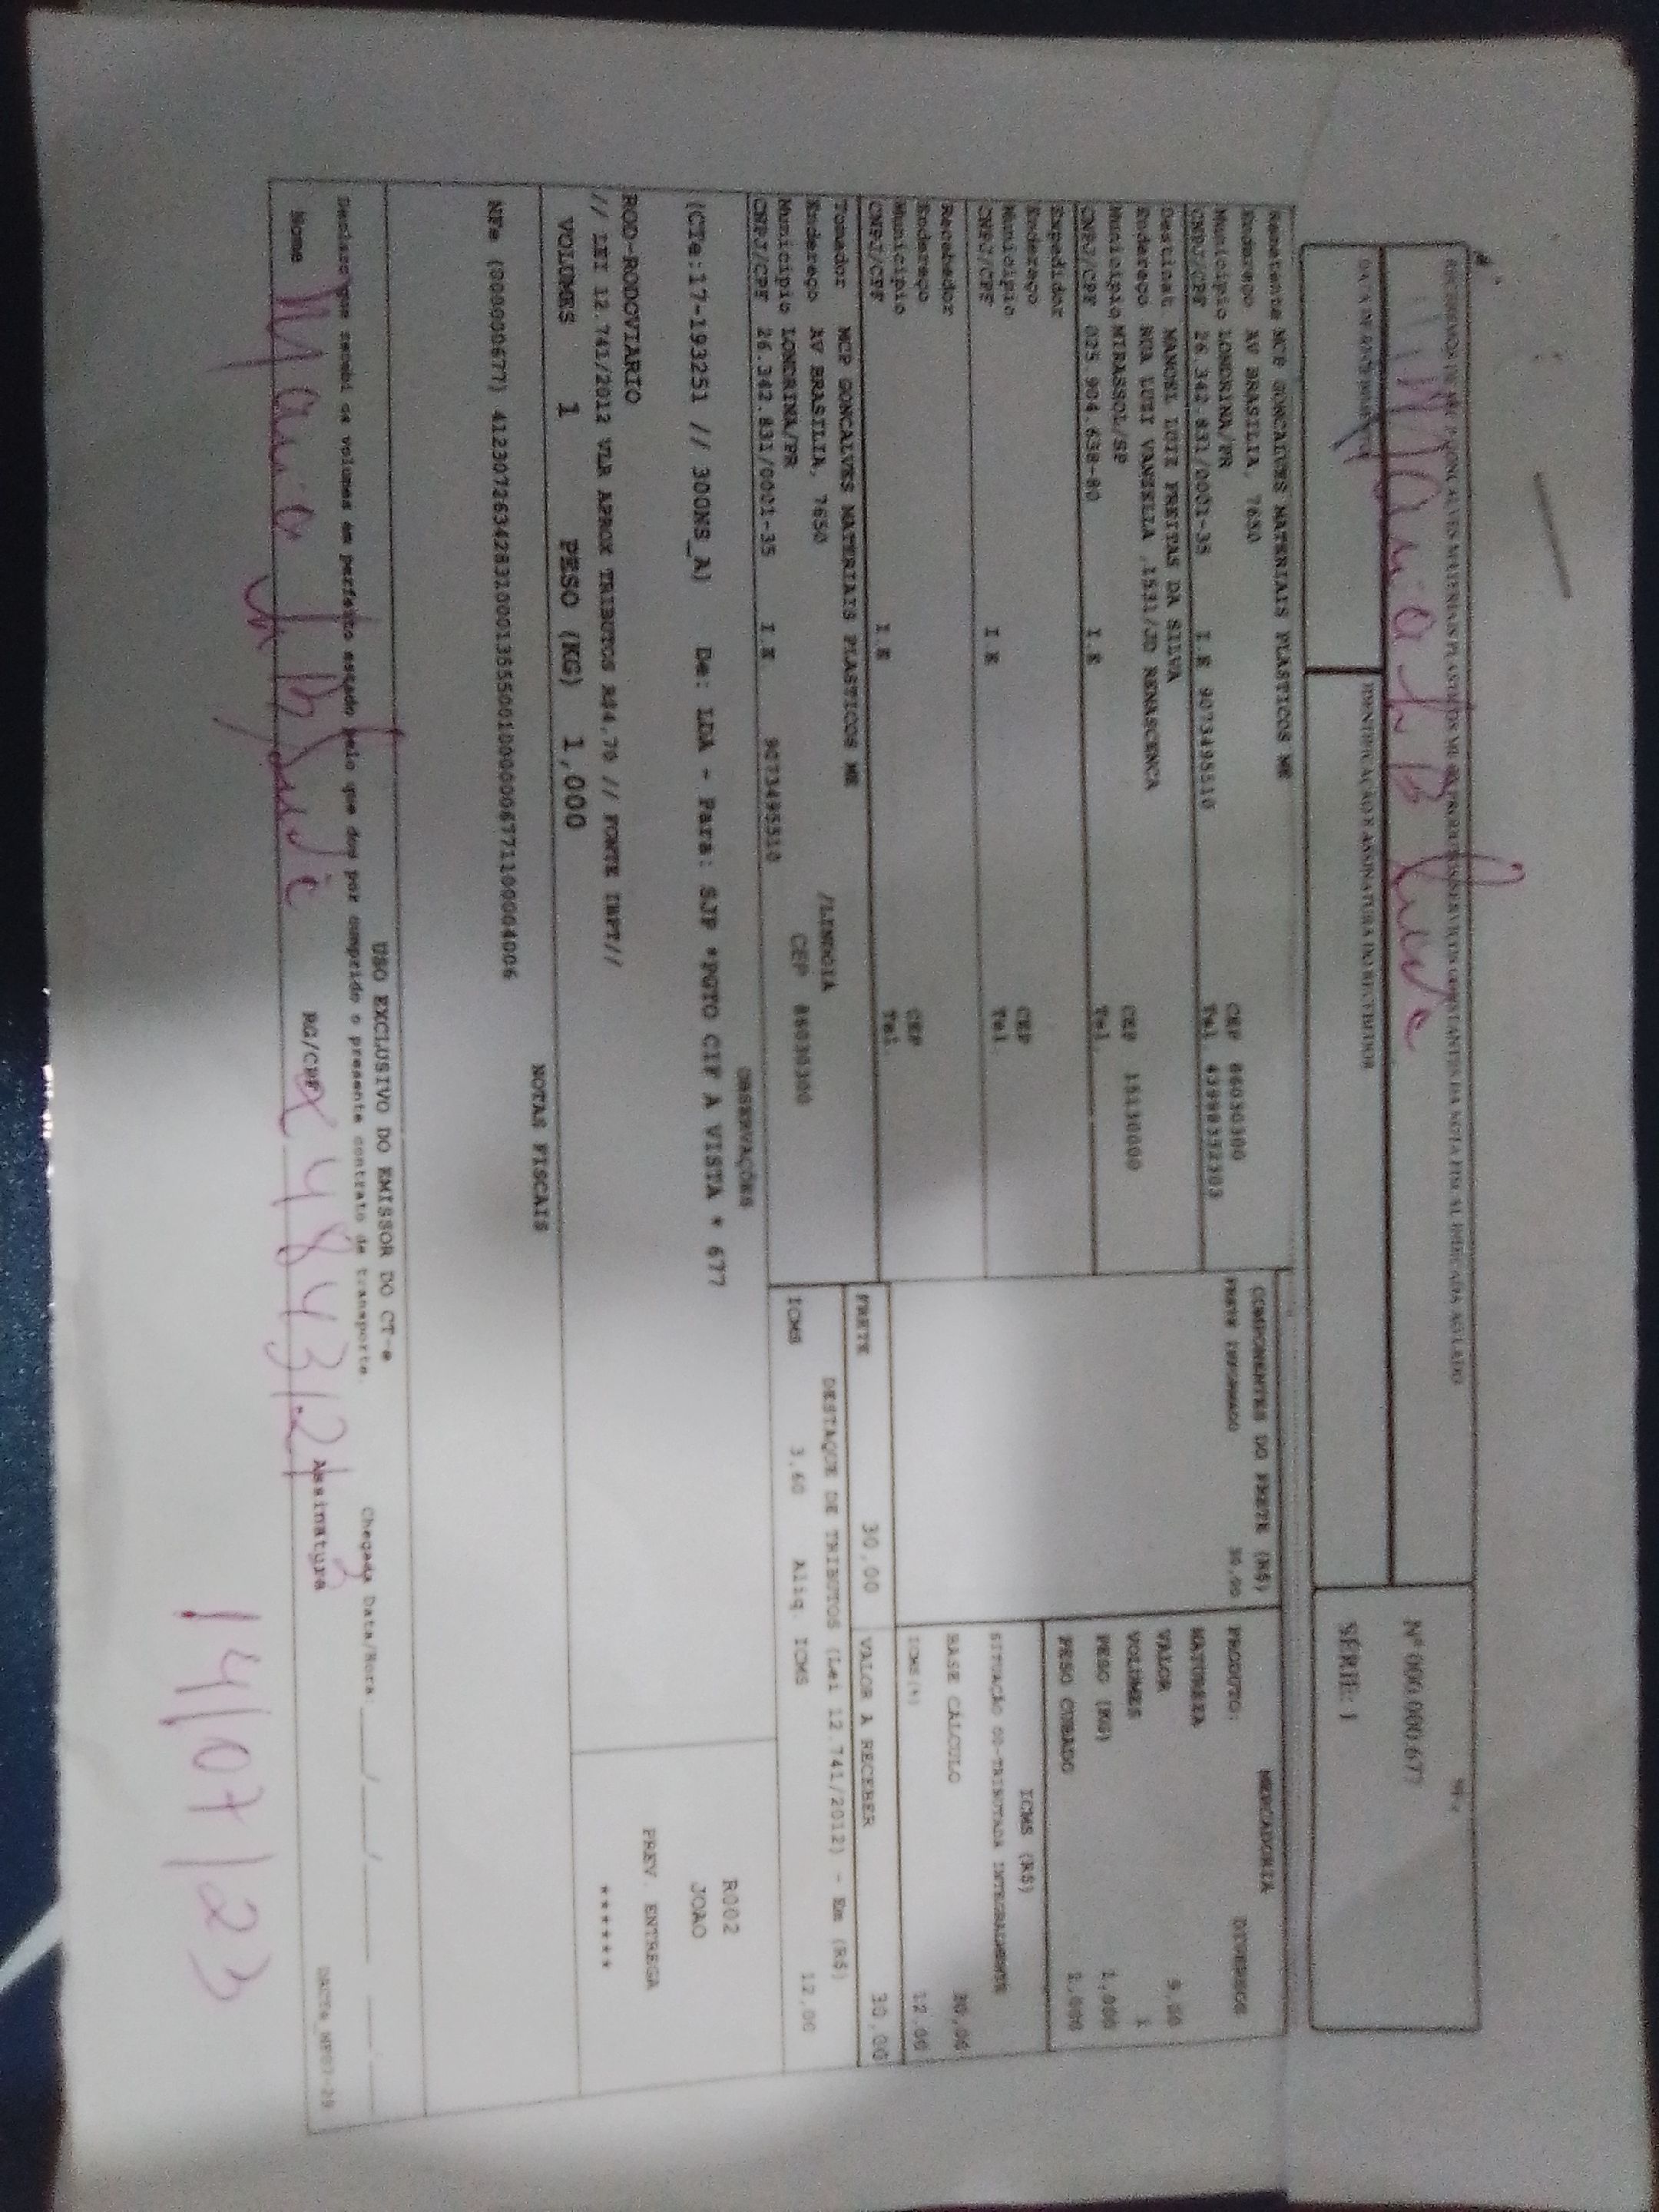 RECEBEMOS DE MCP GONCALVES MATERIAIS PLASTICOS ME OS PRODUTOS/SERVIÇOS CONSTANTES DA NOTA FISCAL INDICADA AO LADO
NF-e
Nº 000.000.677
SÉRIE: 1
DATA DE RECEBIMENTO
IDENTIFICAÇÃO E ASSINATURA DO RECEBEDOR
Remetente MCP GONCALVES MATERIAIS PLASTICOS ME
Endereço AV BRASILIA, 7650
Município LONDRINA/PR CEP 86030300
CNPJ/CPF 26.342.831/0001-35 I.E 9073495510 Tel.
Destinat MANOEL LUIZ FREITAS DA SILVA
Endereço RUA LUZI VANZELLA ,1531/JD RENASCENCA
Município MIRASSOL/SP CEP 15130000
CNPJ/CPF 025.904.638-80 I.E Tel.
Expedidor
Endereço
Município CEP
CNPJ/CPF I.E Tel.
Recebedor
Endereço
Município CEP
CNPJ/CPF I.E Tel.
Tomador MCP GONCALVES MATERIAIS PLASTICOS ME
Endereço AV BRASILIA, 7650
Município LONDRINA/PR CEP 86030300
CNPJ/CPF 26.342.831/0001-35 I.E 9073495510
COMPONENTES DO FRETE (R$)
FRETE INFORMADO 30,00
MERCADORIA
PRODUTO: DIVERSOS
NATUREZA
VALOR
VOLUMES 1
PESO (KG) 1,000
PESO CUBADO 1,000
ICMS (R$)
SITUAÇÃO 00-TRIBUTADA INTEGRALMENTE
BASE CALCULO 30,00
ICMS(%) 12,00
FRETE 30,00 VALOR A RECEBER 30,00
DESTAQUE DE TRIBUTOS (Lei 12.741/2012) - Em (R$)
ICMS 3,60 Aliq. ICMS 12,00
OBSERVAÇÕES
(CTe:17-193251 // 300NS_A) De: LDA - Para: SJP *PGTO CIF A VISTA * 677
ROD-RODOVIARIO
// LEI 12.741/2012 VLR APROX TRIBUTOS R$4,70 // FONTE IBPT//
R002
JOAO
PREV. ENTREGA
******
VOLUMES 1 PESO (KG) 1,000
NOTAS FISCAIS
NFe (000000677) 41230726342831000135550010000006771100004006
USO EXCLUSIVO DO EMISSOR DO CT-e
Declaro que recebi os volumes em perfeito estado pelo que dou por cumprido o presente contrato de transporte.
Chegada Data/Hora ____/____/______ ____:____
Nome RG/CPF Assinatura
14/07/23